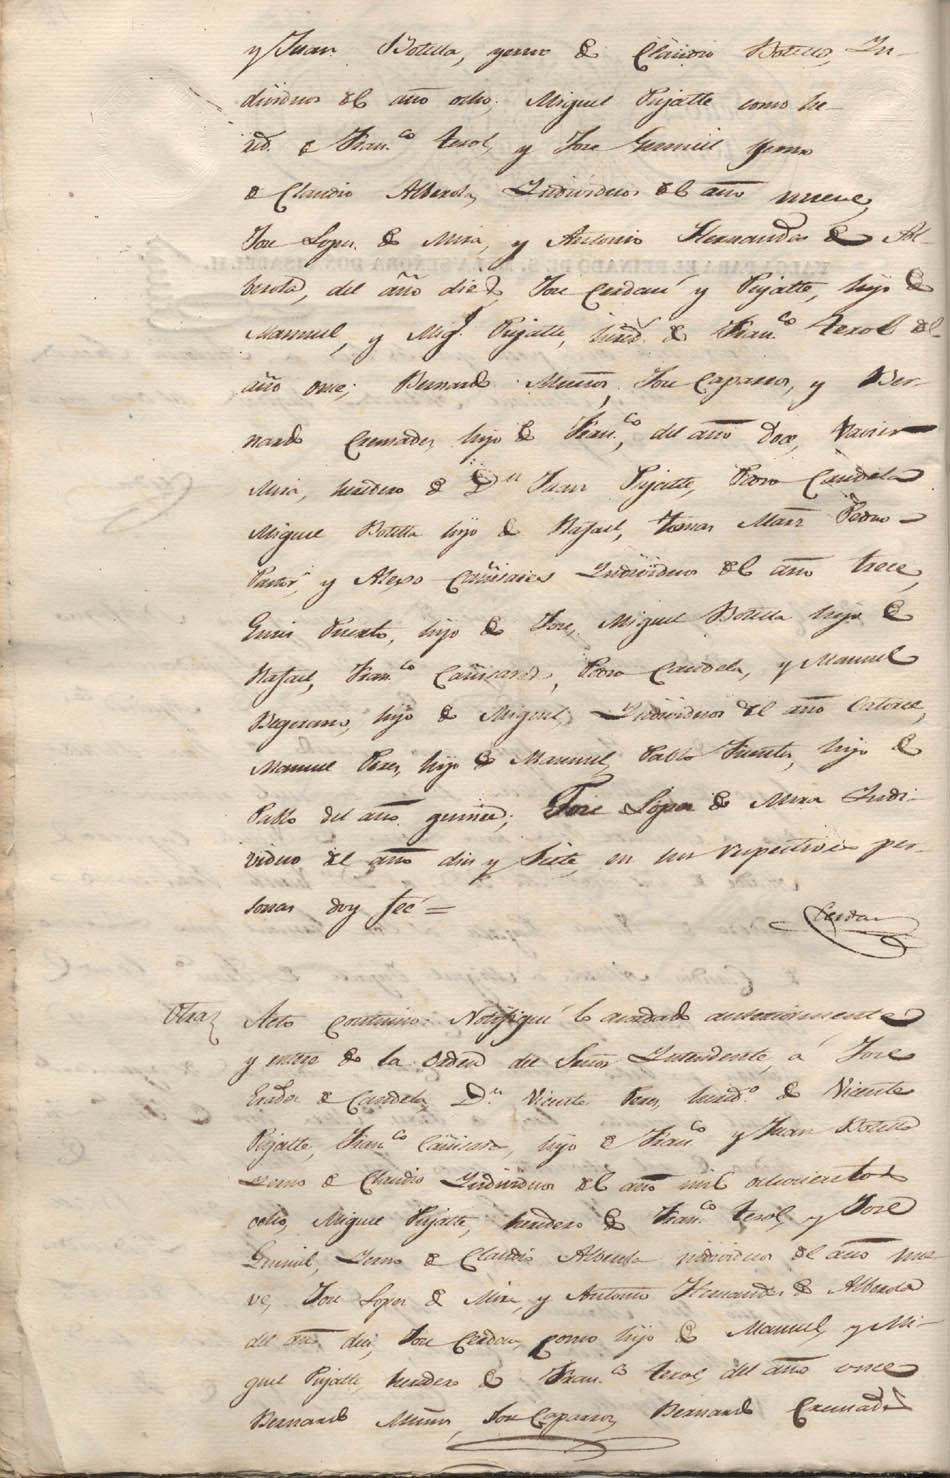 y Juan Botella, yerno de Claudio Botella, In-
dividuos del año ocho; Miguel Pujalte como he-
red. de Fran.co Terol, y Jose Gumiel yerno
de Claudio Alberola, Individuos del año nueve,
Jose Lopez de Mira, y Antonio Hernandez de Al-
berola, del año diez, Jose Cerdan y Pujalte, hijo de
Manuel, y Mig.l Pujalte, hered.o de Fran.co Terol del
año once; Bernardo Muños, Jose Caparros, y Ber-
nardo Cremades, hijo de Fran.co, del año doce, Xavier
Mira, heredero de D.n Juan Pujalte, Pedro Candela
Miguel Botella hijo de Rafael, Tomas Mart Pedro
Pastor, y Alexo Cañisares Individuos del año trece,
Puerto, hijo de Jose, Miguel Botella hijo de
Rafael, Fran.co Cañisares, Pedro Candela, y Manuel
hijo de Miguel, Individuos del año Catorce,
Manuel Peres, hijo de Manuel, Pablo Fuentes, hijo de
Pablo del año quince; Jose Lopez de Mira Indi-
viduo del año dies y Siete, en sus respectivas per-
sonas doy feé =
Cerdan
Otra
Acto continuo: Notifiqué lo acordado anteriormente
y entero de la Orden del Señor Intendente, á Jose
de Candela, D.n Vicente Peres, hered.o de Vicente
Pujalte, Fran.co Cañisares, hijo de Fran.co y Juan Botella
Yerno de Claudio Individuos del año mil ochocientos
ocho, Miguel Pujalte, heredero de Fran.co Terol, y José
Gumiel, Yerno de Claudio Alberola individuos del año nue-
ve, Jose Lopez de Mira, y Antonio Hernandez de Alberola
del año diez, Jose Cerdan, como hijo de Manuel, y Mi-
guel Pujalte, heredero de Fran.co Terol, del año once
Bernardo Muños, Jose Caparros, Bernardo Cremades